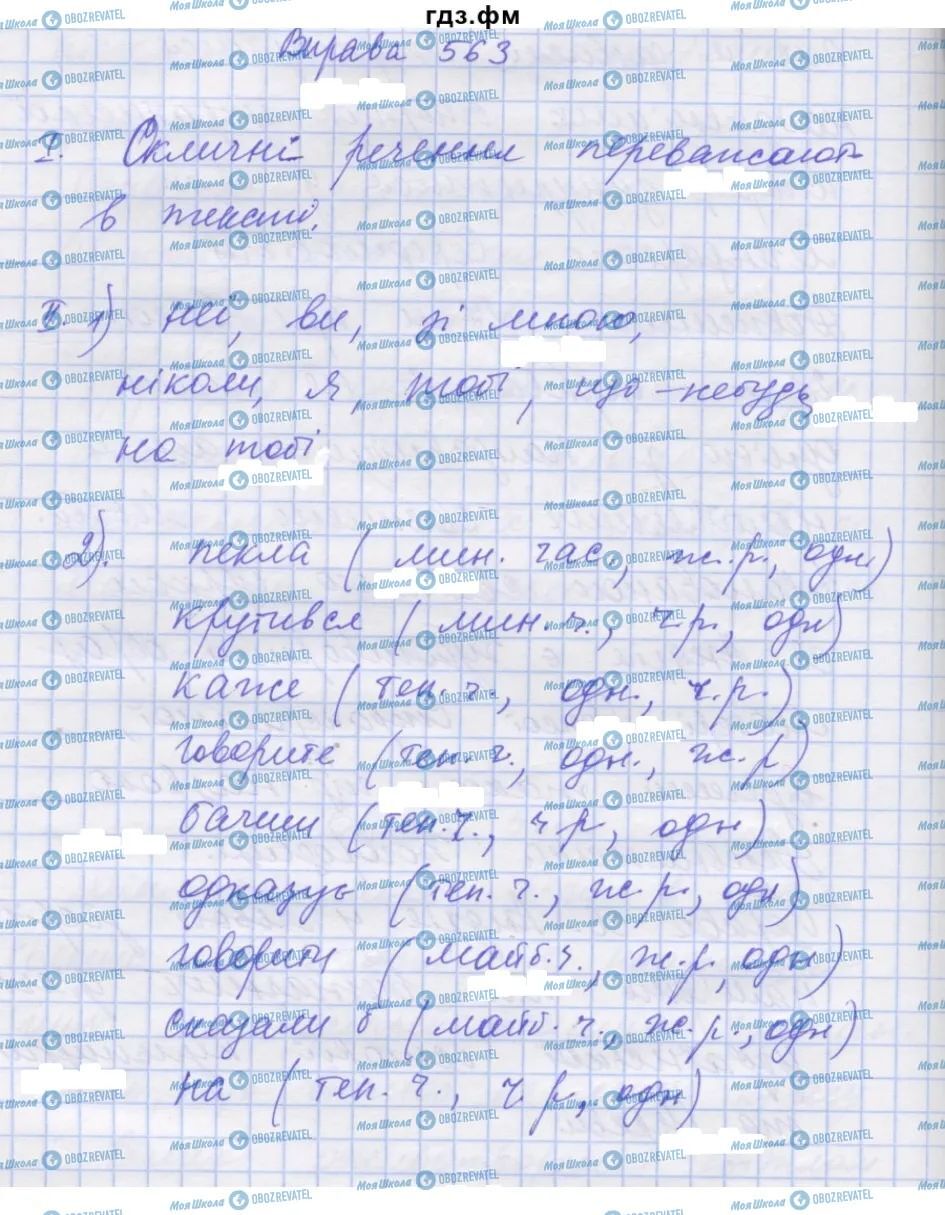 гдз.фм
Вправа 563
I. Окличні речення переважають
в тексті.
II. 1) неї, ви, зі мною,
ніколи, я, тобі, що-небудь
на тобі
2). пекла (мин. час., ж.р., одн)
крутився (мин. ч., ч.р., одн)
каже (теп. ч., одн., ч.р.)
говорите (теп. ч., одн., ж.р)
бачиш (теп. ч., ч р, одн)
одказує (теп. ч., ж.р., одн)
говорити (майб. ч., ж.р, одн)
сказали б (майб. ч., ж. р., одн)
на (теп. ч., ч.р, одн)